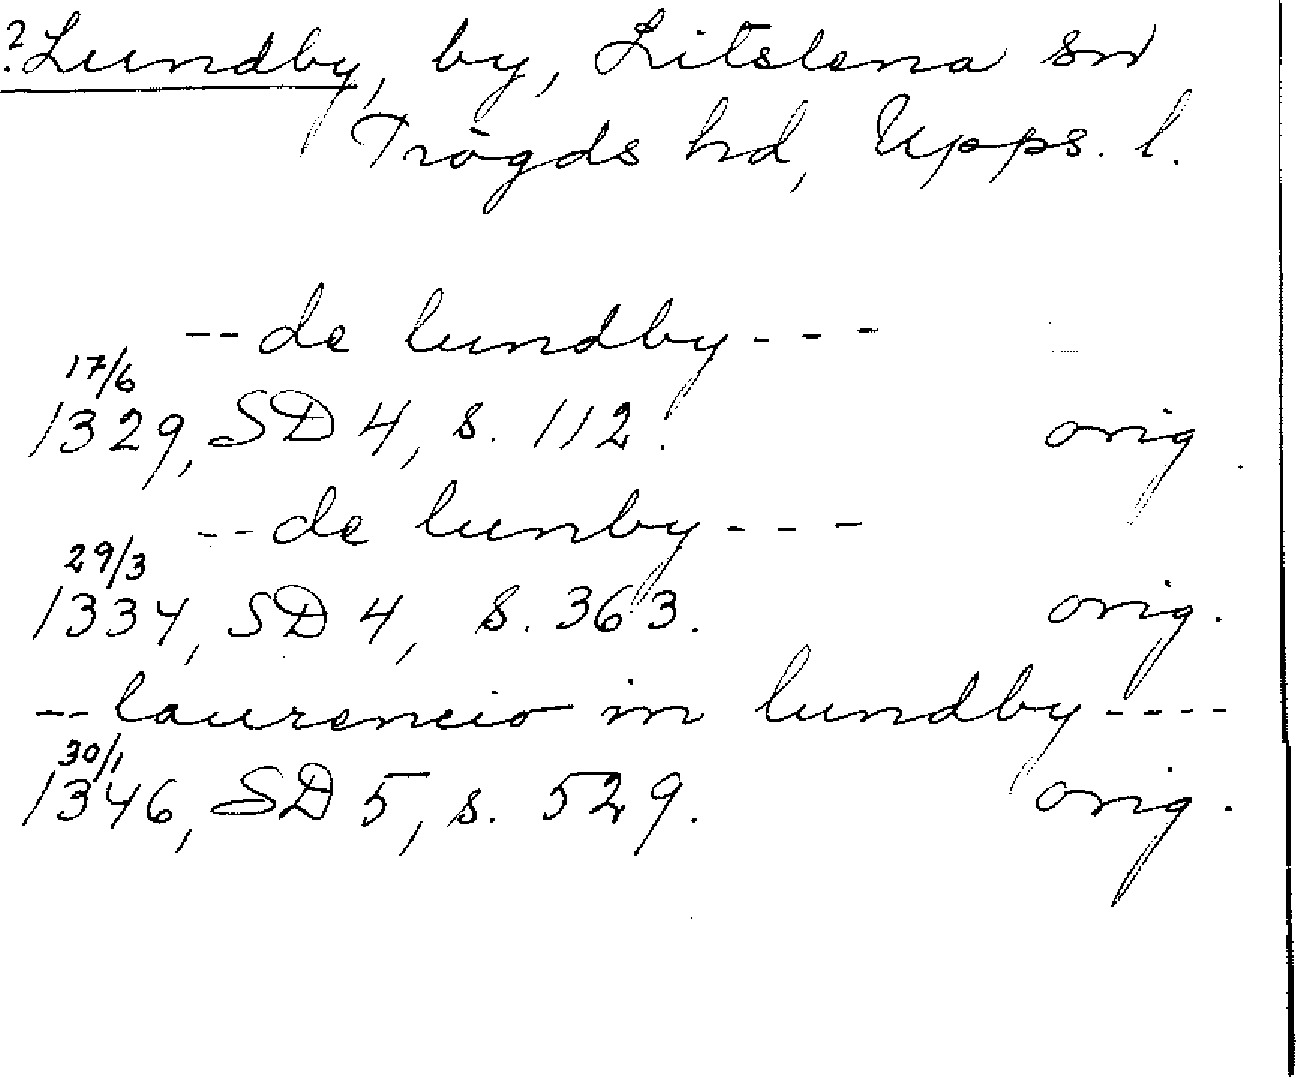 ?Lundby, by, Litslena sn
Trögds hd, Upps. l.
--de lundby---
17/6
1329, SD 4, s. 112. orig.
--de lunby---
29/3
1334, SD 4, s. 363. orig.
--laurencio in lundby----
30/1
1346, SD 5, s. 529. orig.